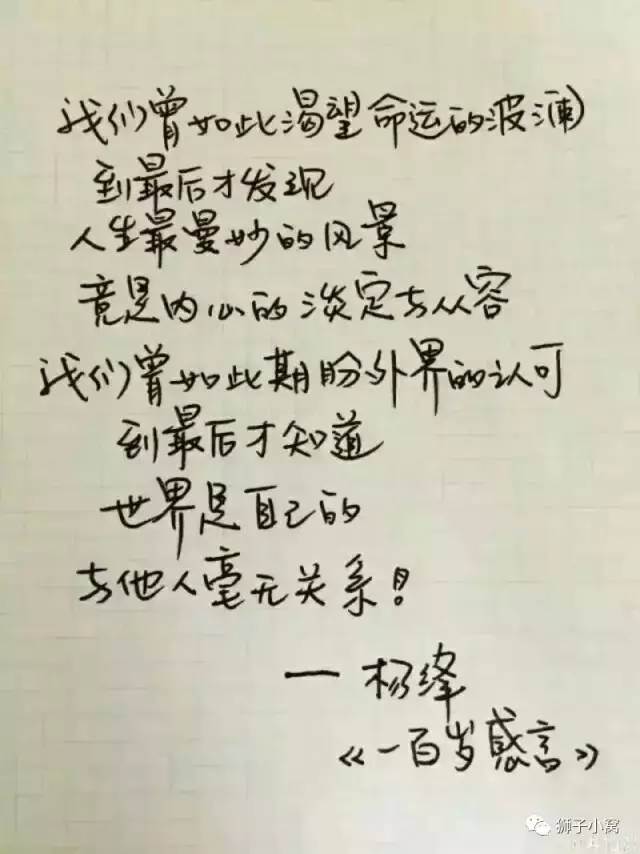 我们曾如此渴望命运的波澜
到最后才发现
人生最曼妙的风景
竟是内心的淡定与从容
我们曾如此期盼外界的认可
到最后才知道
世界是自己的
与他人毫无关系！
— 杨绛
《一百岁感言》
狮子小窝